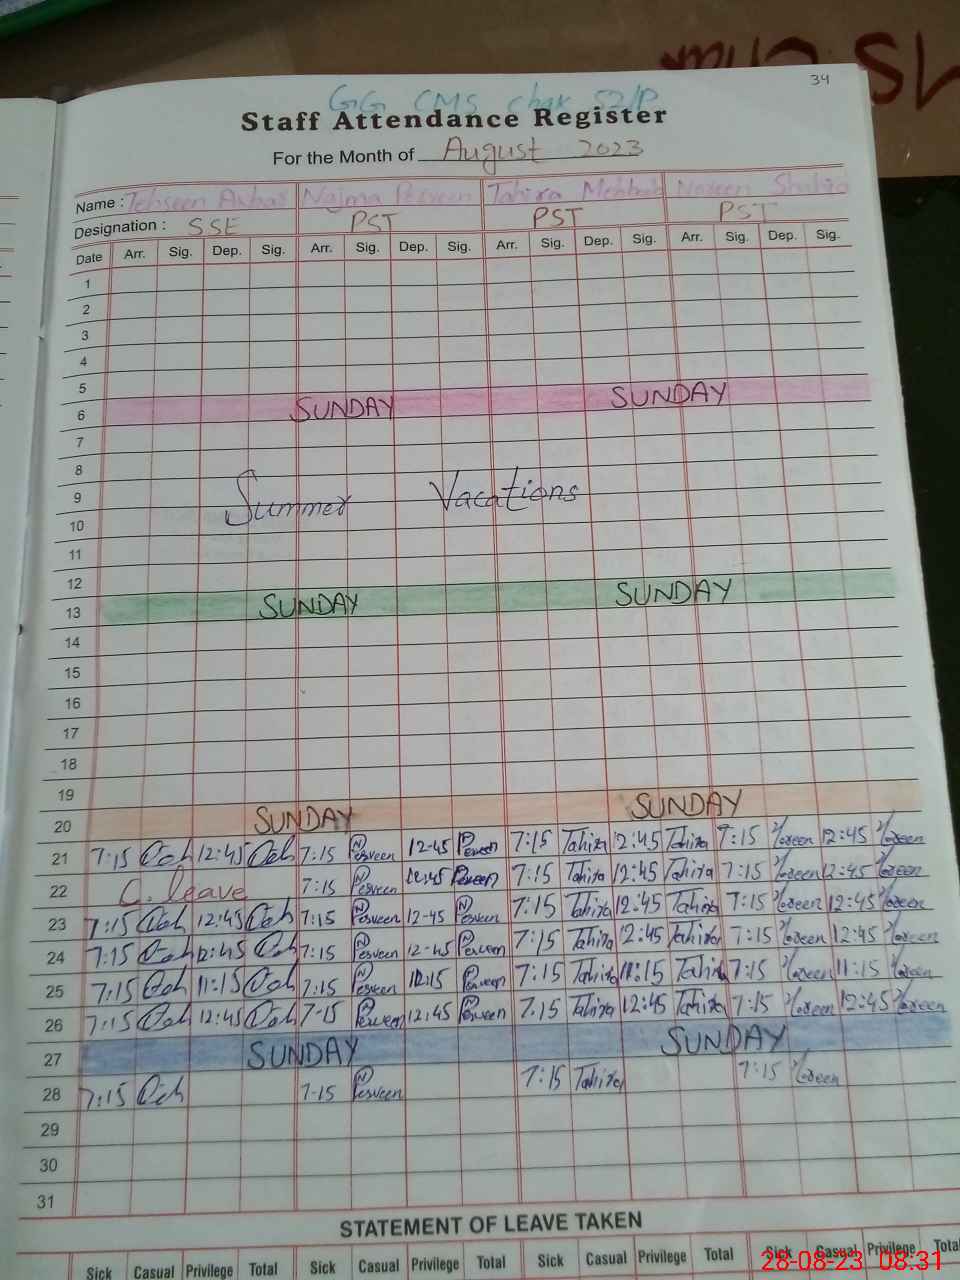 34
GG CMS chak 52/P
Staff Attendance Register
For the Month of August 2023
Name : Tehseen Najma Perveen Tahira Mehtab Noreen
Designation : SSE PST PST PST
Date Arr. Sig. Dep. Sig. Arr. Sig. Dep. Sig. Arr. Sig. Dep. Sig. Arr. Sig. Dep. Sig.
1
2
3
4
5
6 SUNDAY SUNDAY
7
8
9 Summer Vacations
10
11
12
13 SUNDAY SUNDAY
14
15
16
17
18
19
20 SUNDAY SUNDAY
21 7:15 12:45 7:15 N Perveen 12-45 Perveen 7:15 Tahira 12:45 Tahira 7:15 Noreen 12:45 Noreen
22 C. leave 7:15 N Perveen 12:45 Perveen 7:15 Tahira 12:45 Tahira 7:15 Noreen 12:45 Noreen
23 7:15 12:45 7:15 N Perveen 12-45 N Perveen 7:15 Tahira 12:45 Tahira 7:15 Noreen 12:45 Noreen
24 7:15 12:45 7:15 N Perveen 12-45 N Perveen 7:15 Tahira 12:45 Tahira 7:15 Noreen 12:45 Noreen
25 7:15 11:15 7:15 N Perveen 11:15 Perveen 7:15 Tahira 11:15 Tahira 7:15 Noreen 11:15 Noreen
26 7:15 12:45 7-15 Perveen 12:45 Perveen 7:15 Tahira 12:45 Tahira 7:15 Noreen 12:45 Noreen
27 SUNDAY SUNDAY
28 7:15 7-15 N Perveen 7:15 Tahira 7:15 Noreen
29
30
31
STATEMENT OF LEAVE TAKEN
Sick Casual Privilege Total Sick Casual Privilege Total Sick Casual Privilege Total Sick Casual Privilege Total
28-08-23 08:31